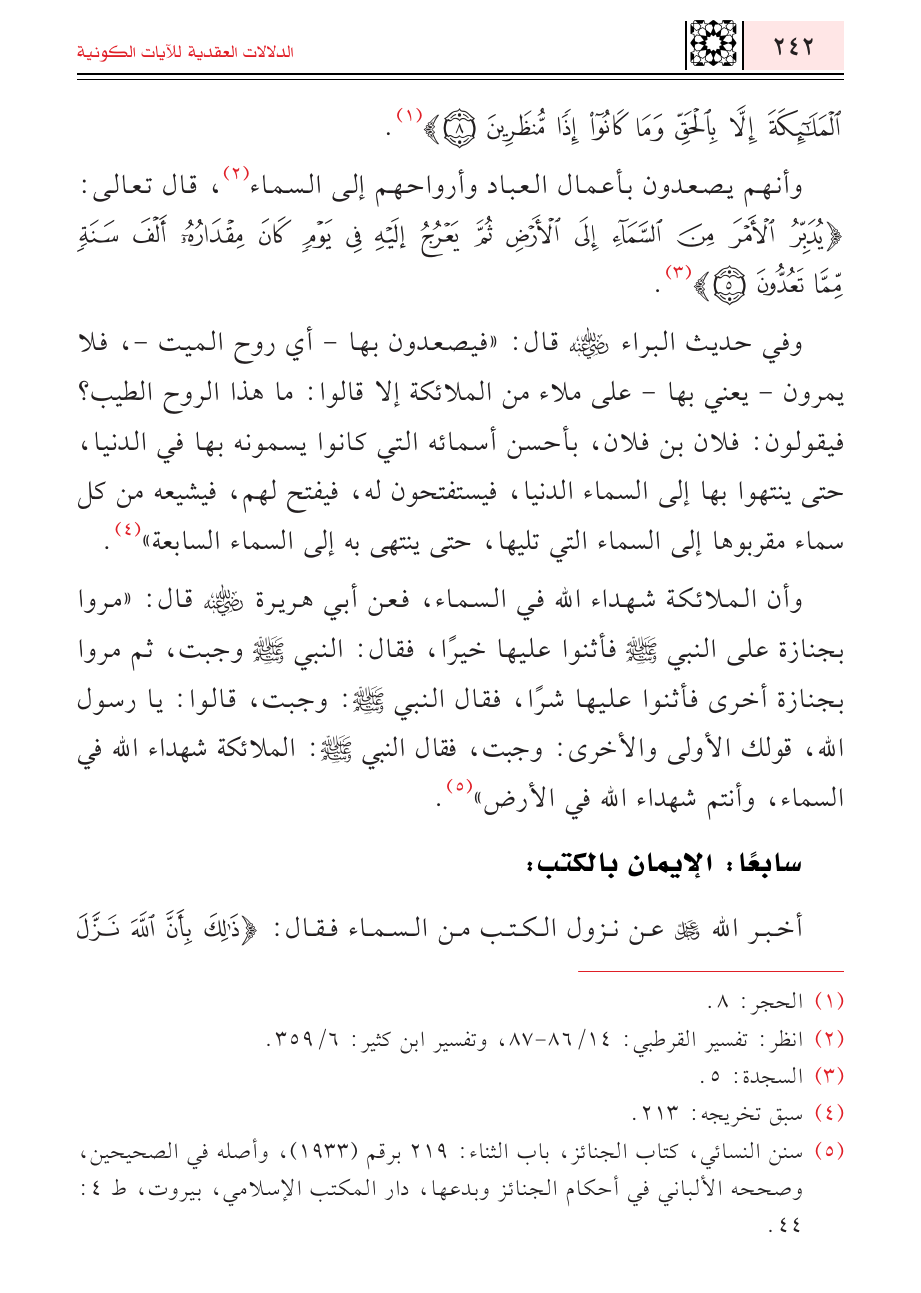 ٢٤٢
الدلالات العقدية للآيات الكونية
ٱلْمَلَـٰٓئِكَةَ إِلَّا بِٱلْحَقِّ وَمَا كَانُوٓا۟ إِذًا مُّنظَرِينَ ٨﴾(١).
وأنهم يصعدون بأعمال العباد وأرواحهم إلى السماء(٢)، قال تعالى:
﴿يُدَبِّرُ ٱلْأَمْرَ مِنَ ٱلسَّمَآءِ إِلَى ٱلْأَرْضِ ثُمَّ يَعْرُجُ إِلَيْهِ فِى يَوْمٍ كَانَ مِقْدَارُهُۥٓ أَلْفَ سَنَةٍ
مِّمَّا تَعُدُّونَ ٥﴾(٣).
وفي حديث البراء رضي الله عنه قال: «فيصعدون بها - أي روح الميت -، فلا
يمرون - يعني بها - على ملاء من الملائكة إلا قالوا: ما هذا الروح الطيب؟
فيقولون: فلان بن فلان، بأحسن أسمائه التي كانوا يسمونه بها في الدنيا،
حتى ينتهوا بها إلى السماء الدنيا، فيستفتحون له، فيفتح لهم، فيشيعه من كل
سماء مقربوها إلى السماء التي تليها، حتى ينتهى به إلى السماء السابعة»(٤).
وأن الملائكة شهداء الله في السماء، فعن أبي هريرة رضي الله عنه قال: «مروا
بجنازة على النبي ﷺ فأثنوا عليها خيرًا، فقال: النبي ﷺ وجبت، ثم مروا
بجنازة أخرى فأثنوا عليها شرًا، فقال النبي ﷺ: وجبت، قالوا: يا رسول
الله، قولك الأولى والأخرى: وجبت، فقال النبي ﷺ: الملائكة شهداء الله في
السماء، وأنتم شهداء الله في الأرض»(٥).
سابعًا: الإيمان بالكتب:
أخبر الله عز وجل عن نزول الكتب من السماء فقال: ﴿ذَٰلِكَ بِأَنَّ ٱللَّهَ نَزَّلَ
(١) الحجر: ٨.
(٢) انظر: تفسير القرطبي: ١٤/ ٨٦-٨٧، وتفسير ابن كثير: ٦/ ٣٥٩.
(٣) السجدة: ٥.
(٤) سبق تخريجه: ٢١٣.
(٥) سنن النسائي، كتاب الجنائز، باب الثناء: ٢١٩ برقم (١٩٣٣)، وأصله في الصحيحين،
وصححه الألباني في أحكام الجنائز وبدعها، دار المكتب الإسلامي، بيروت، ط ٤:
٤٤.